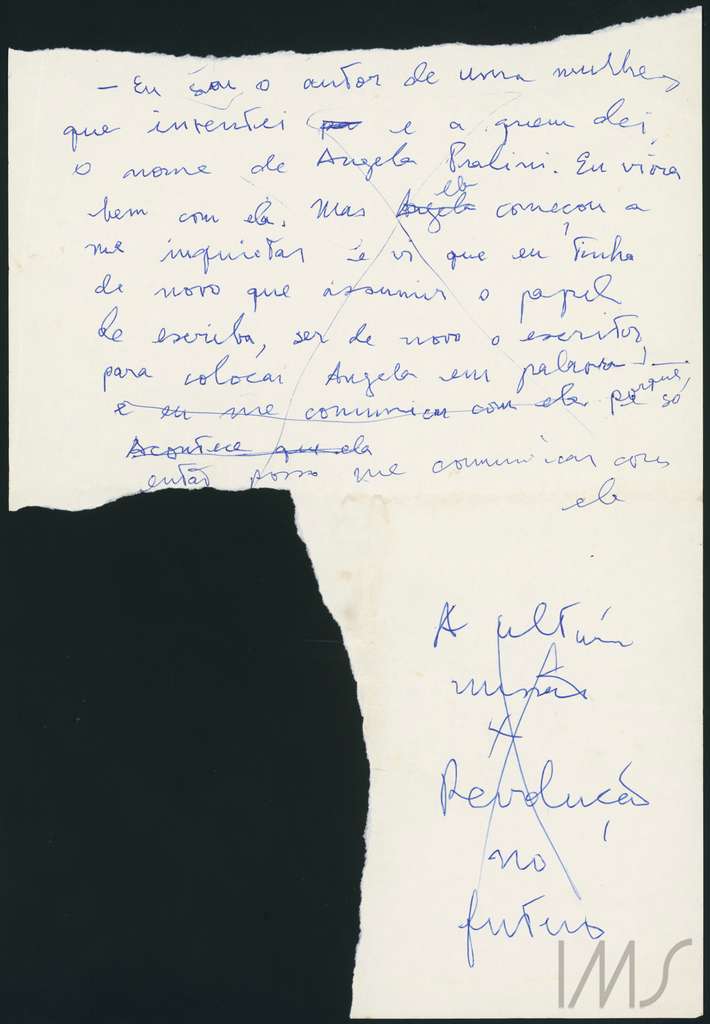 — Eu sou o autor de uma mulher
que inventei e a quem dei
o nome de Angela Pralini. Eu vivia
bem com ela. Mas Angela ela começou a
me inquietar e vi que eu tinha
de novo que assumir o papel
de escriba, ser de novo o escritor,
para colocar Angela em palavras —
e eu me comunicar com ela porque só
Acontece que ela
então posso me comunicar com
ela
A última
Revolução
no
futuro
IMS